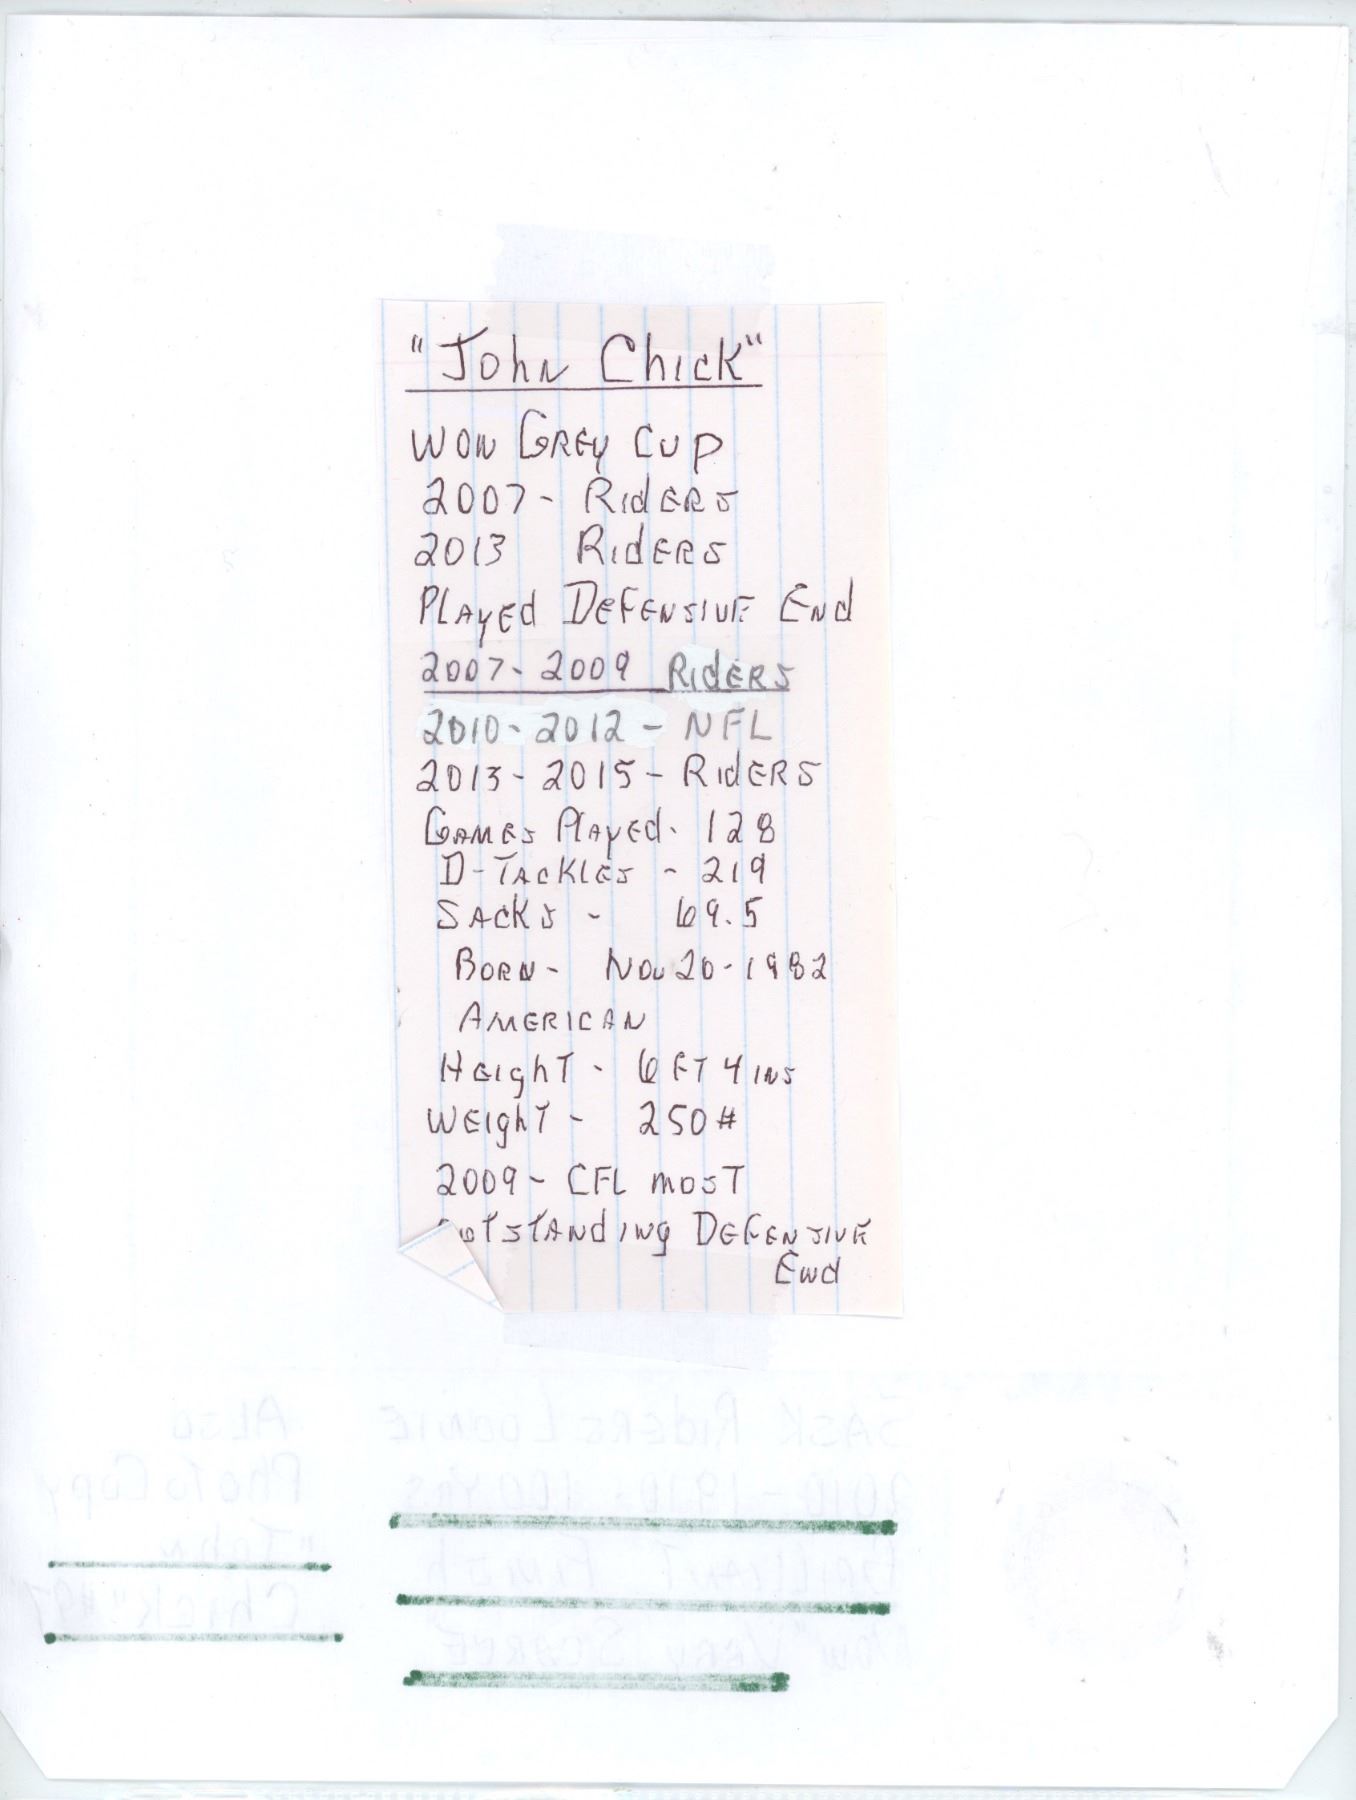 "John Chick"
WON GREY CUP
2007 - RIDERS
2013 RIDERS
PLAYED DEFENSIVE END
2007 - 2009 RIDERS
2010 - 2012 - NFL
2013 - 2015 - RIDERS
GAMES PLAYED - 128
D-TACKLES - 219
SACKS - 69.5
BORN - NOV 20 - 1982
AMERICAN
HEIGHT - 6 FT 4 INS
WEIGHT - 250#
2009 - CFL MOST
OUTSTANDING DEFENSIVE
END
SASK RIDERS LOONIE
2010 - 1910 = 100 YRS
BRILLIANT FINISH
NOW "VERY SCARCE"
ALSO
PHOTO COPY
"JOHN
CHICK" #97